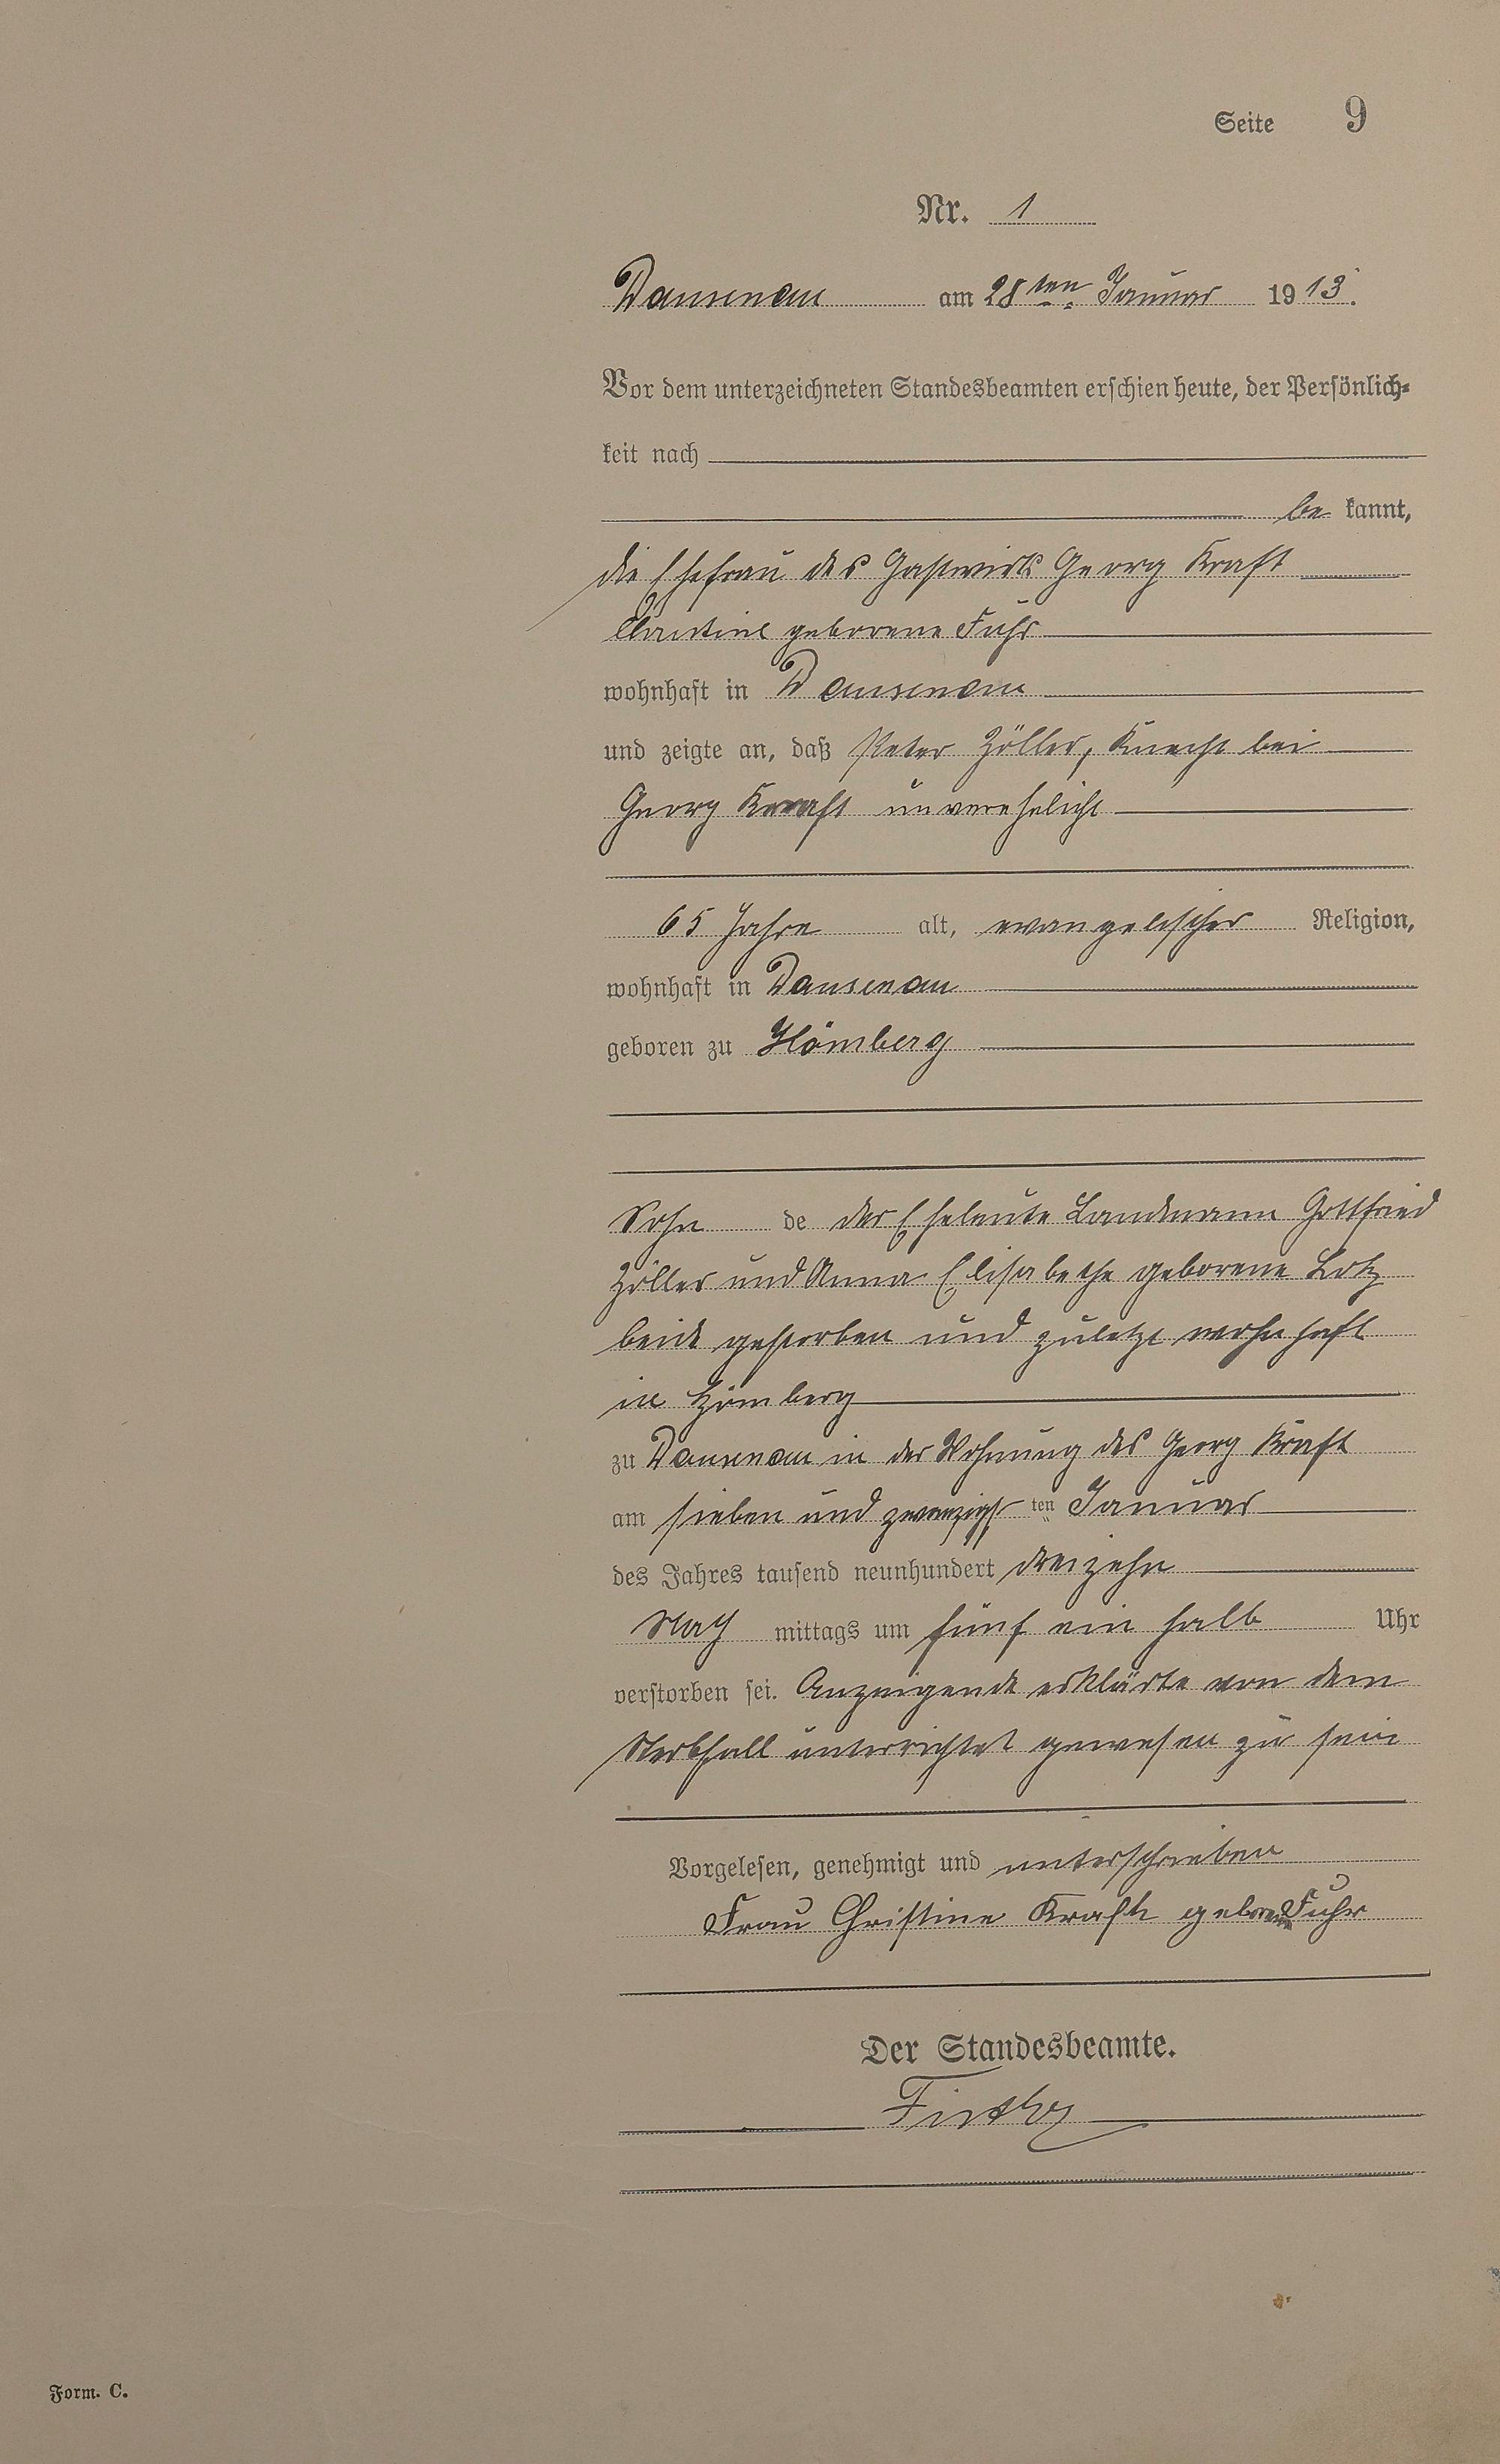 Seite 9
Nr. 1
Dausenau am 28ten Januar 1913.
Vor dem unterzeichneten Standesbeamten erschien heute, der Persönlich-
keit nach
be kannt,
die Ehefrau des Gastwirts Georg Kraft
Christine geborene Fuhr
wohnhaft in Dausenau
und zeigte an, daß Peter Zöller, Knecht bei
Georg Kraft unverehelicht
65 Jahre alt, evangelischer Religion,
wohnhaft in Dausenau
geboren zu Hömberg
Sohn de der Eheleute Landmann Gottfried
Zöller und Anna Elisabethe geborene Lotz
beide gestorben und zuletzt wohnhaft
in Hömberg
zu Dausenau in der Wohnung des Georg Kraft
am sieben und zwanzigsten Januar
des Jahres tausend neunhundert dreizehn
Nach mittags um fünf ein halb Uhr
verstorben sei. Anzeigende erklärte von dem
Sterbfall unterrichtet gewesen zu sein
Vorgelesen, genehmigt und unterschrieben
Frau Christine Kraft geborene Fuhr
Der Standesbeamte.
Form. C.